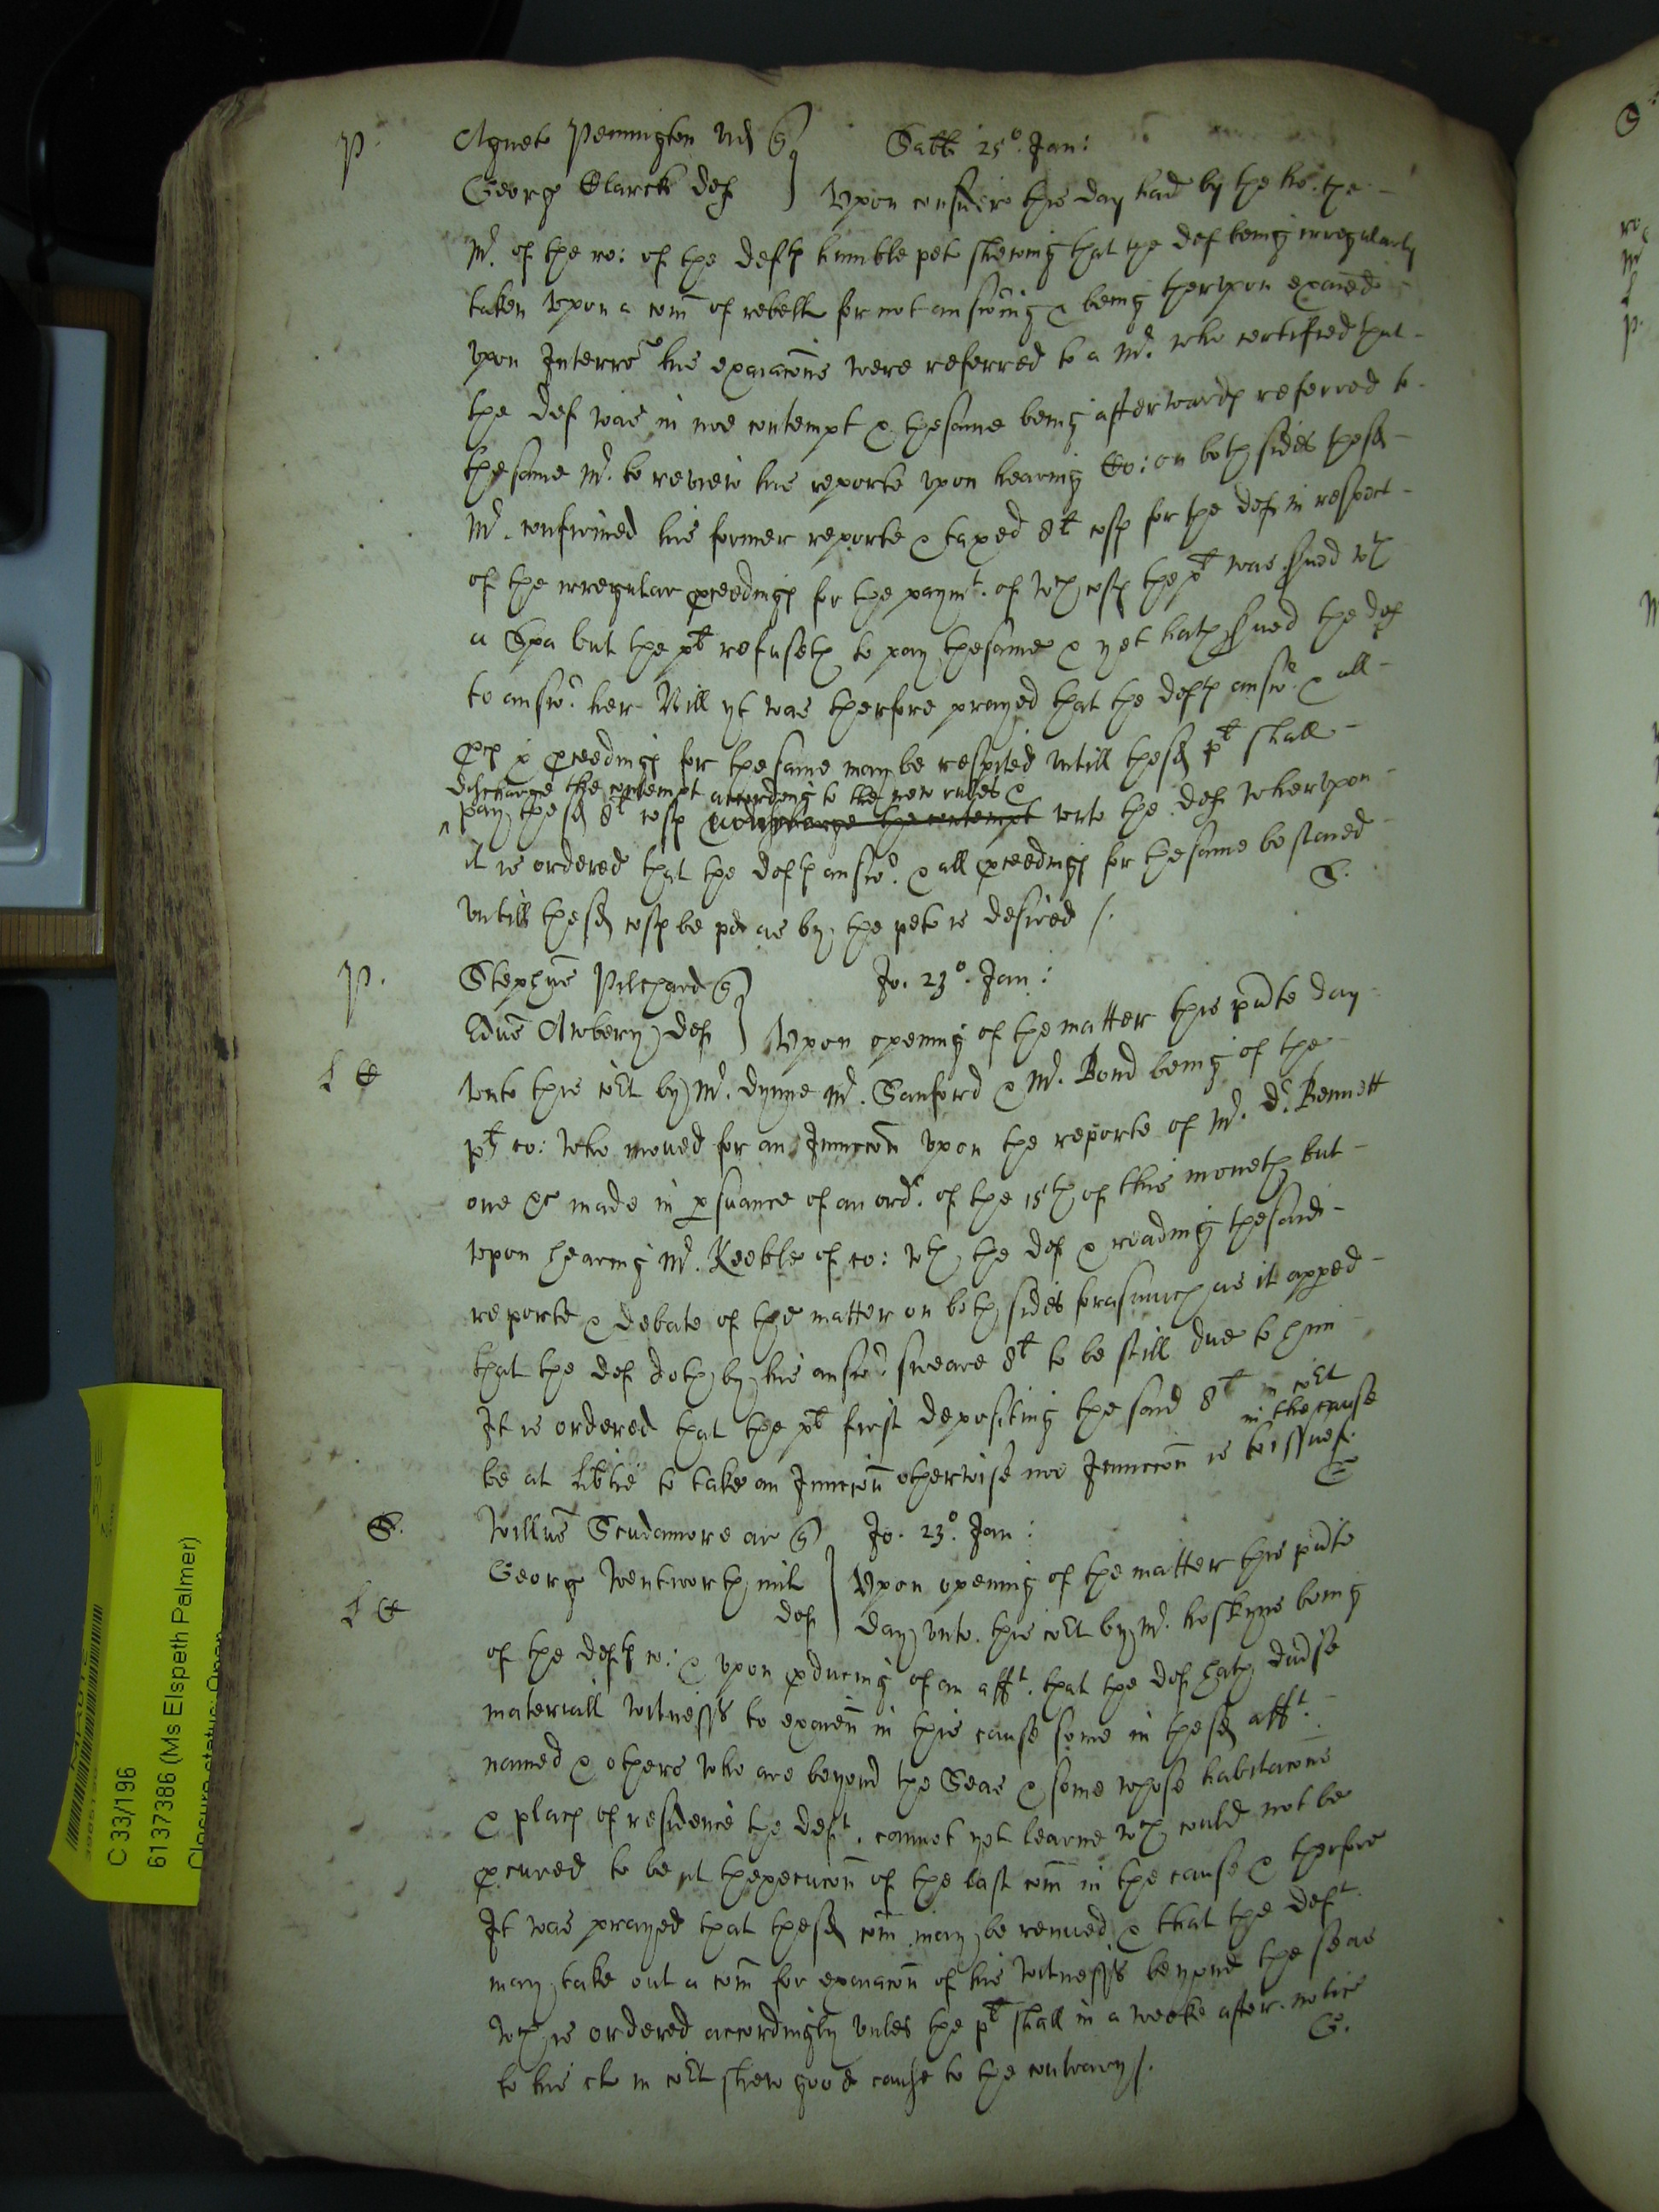 P. Agneta Pennington vid q
Sabti 25º. Jan:
George Clarck def } Vpon considerc this day had by the ho: the
Mr. of the ro: of the defts humble petc shewing that the def being irregularly
taken vpon a com of rebell for not answring & being thervpon exaied
vpon Interro his exaiacons were referred to a Mr. who certified that
the def was in noe contempt & thesame being afterwards referred to
thesame Mr. to reveiw his reporte vpon hearing Co: on both sides thesd
Mr. confirmed his former reporte & taxed 8l costs for the def in respect
of the irregular pceedings for the paymt. of wch costs the plt was srued wth
a Spa but the plt refuseth to pay thesame & yet hath srued the def
to answr. her Bill yt was therfore prayed that the defts answr. & all
pces & pceedings for thesame may be respited vntill thesd plt shall
discharge the contempt according to the new rules &
pay thesd 8l costs vnto the def wherevpon
it is ordered that the defts answr. & all pceedings for thesame be staied
vntill thesd costs be pd as by the petc is desired /.
S.
P. Stephus Pilchard q
Jo. 23º. Jan:
Edus Awbery def } Vpon opening of the matter this pnte day
vnto this cort by Mr. Dynne Mr. Sanford & Mr. Bond being of the
plts co: who moued for an Iniunccon vpon the reporte of Mr. Dr. Bennett
one &c made in psuance of an ordr. of the 15th of this moneth but
vpon hearing Mr. Keeble of co: wth the def & reading thesaid
reporte & debate of the matter on both sides forasmuch as it apped
that the def doth by his answr. sweare 8l to be still due to him
It is ordered that the plt first depositing the said 8l in cort
in the cause
be at libtie to take an Iniunccon otherwise noe Iniunccon is to issue /.
S. Willus Scudamore ar q Jo. 23º. Jan:
George Wentworth mil } Vpon opening of the matter this pnte
def day vnto this cort by Mr. Hoskyns being
of the defts co: & vpon pducing of an afft. that the def hath diuse
materiall witnesses to exaien in this cause some in thesd afft.
named & others who are beyond the Seas & some whose habitacons
& places of residence the deft. cannot yet learne wch could not be
pcured to be at thexecucon of the last com in the cause & therfore
It was prayed that thesd com may be renued & that the deft.
may take out a com for exaiacon of his witnesses beyond the seas
wch is ordered accordingly vnles the plt shall in a weeke after notice
to his cl in cort shew good cause to the contrary /.
G.
C 33/196
6137386 (Ms Elspeth Palmer)